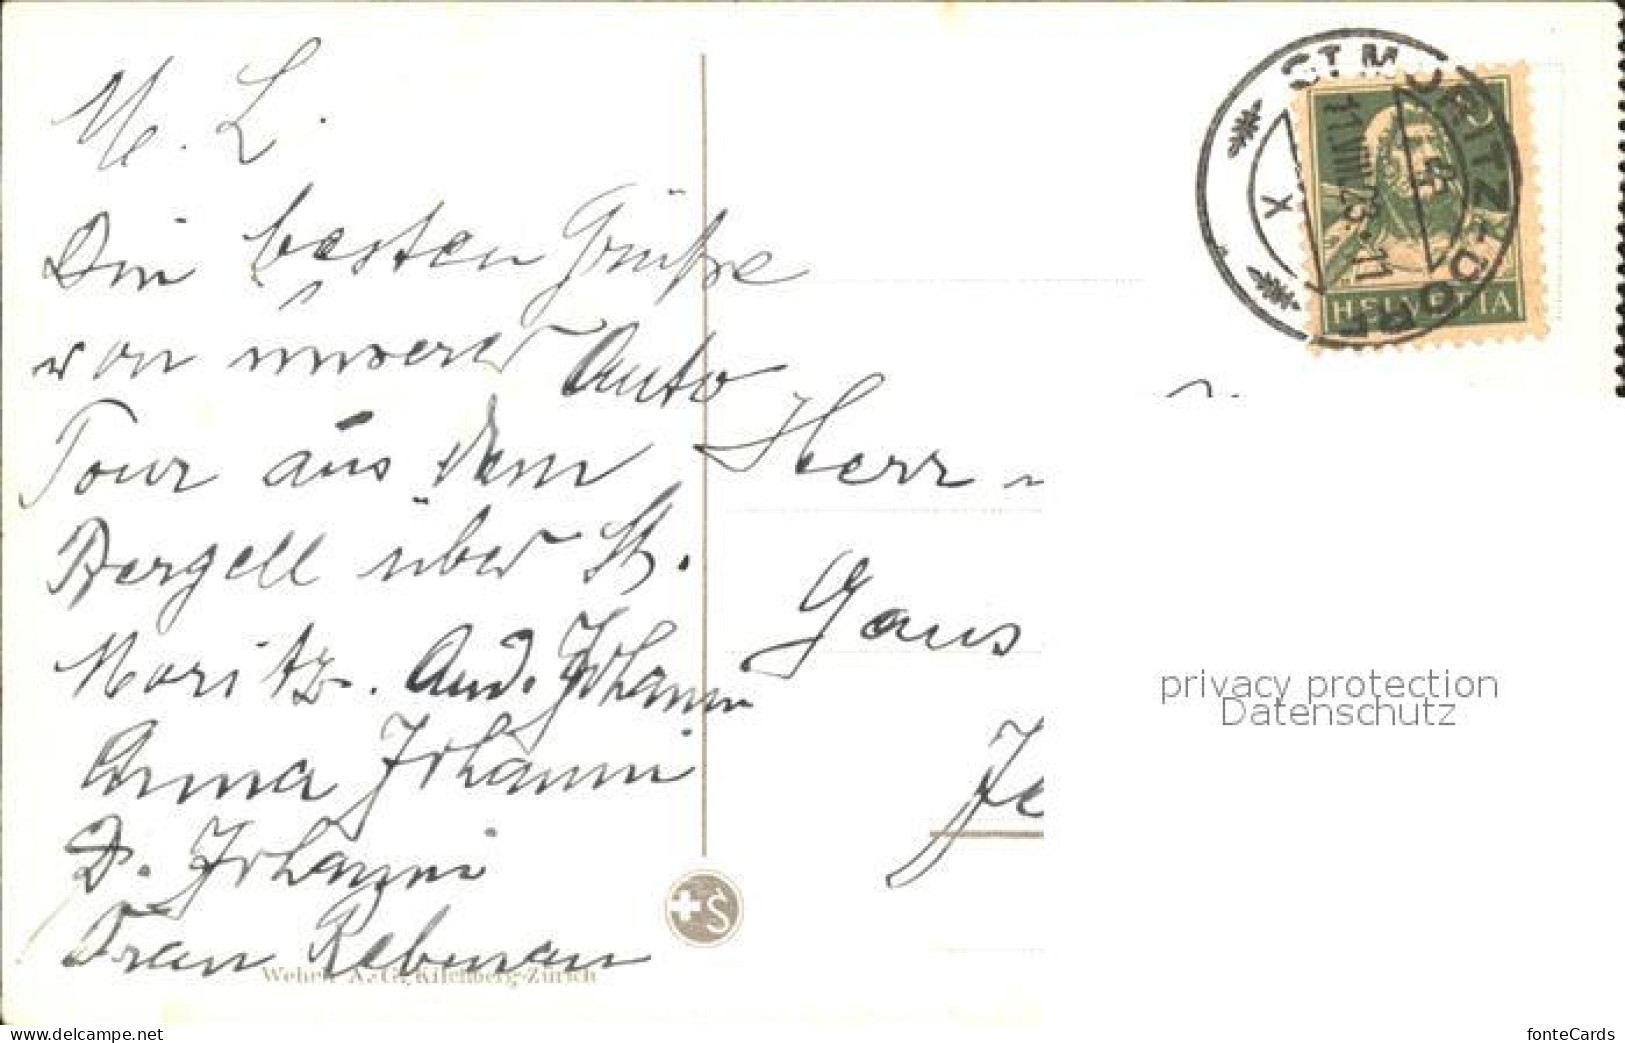 M. L.
Die besten Grüße
von unserer Auto
Tour aus dem
Bergell über St.
Moritz. And. Johanni
Anna Johanni
D. Johanni
Frau Rebman
Wehrli A.-G., Kilchberg-Zürich
Herr
Gaus
Je
S
ST. MORITZ-DORF
11.VIII.23.-11
X
HELVETIA
privacy protection
Datenschutz
www.delcampe.net
fonteCards